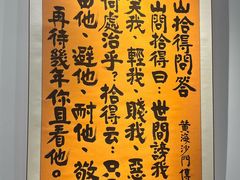 山拾得問答
沙門傳
山問拾得曰：世間謗我
笑我、輕我、賤我、惡
何處治乎？拾得云：只
由他、避他、耐他、敬
再待幾年你且看他。